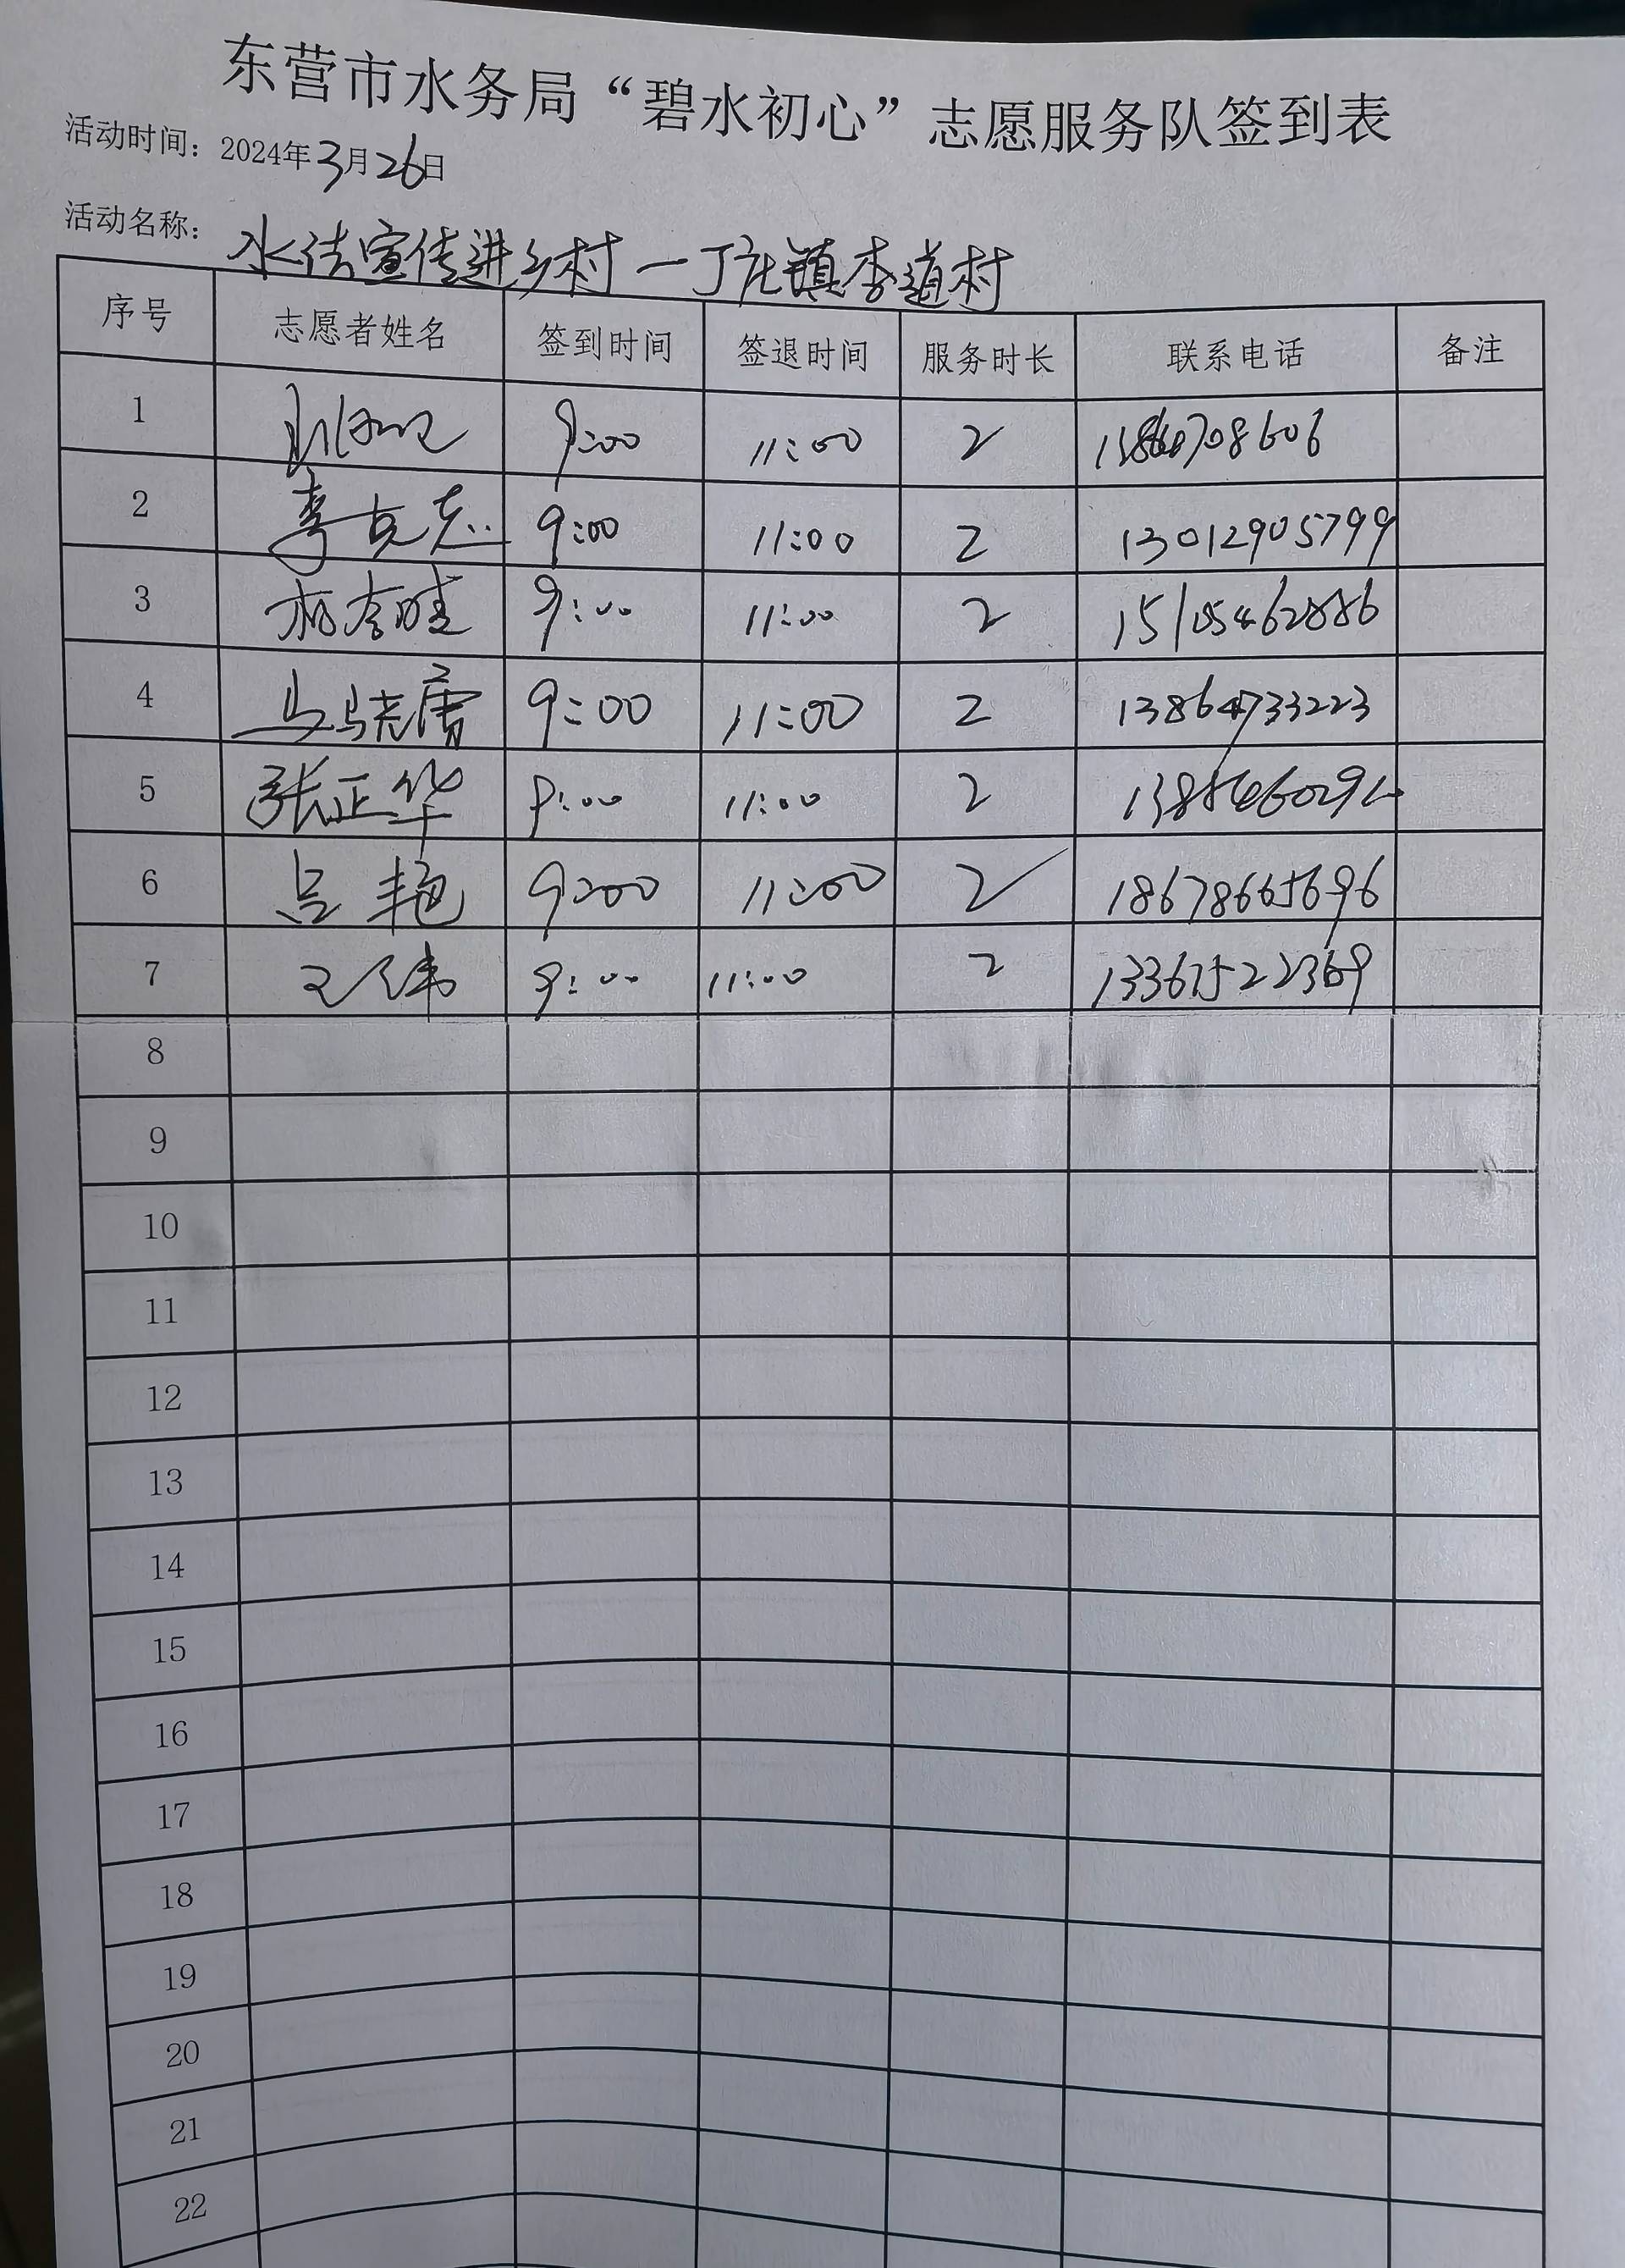 东营市水务局“碧水初心”志愿服务队签到表
活动时间：2024年3月26日
活动名称：水法宣传进乡村—丁庄镇李道村
序号 志愿者姓名 签到时间 签退时间 服务时长 联系电话 备注
1 9:00 11:00 2
2 李克志 9:00 11:00 2 13012905799
3 9:00 11:00 2 15105462886
4 马晓唐 9:00 11:00 2 13864733223
5 张正华 9:00 11:00 2
6 吕艳 9:00 11:00 2 18678665696
7 9:00 11:00 2 13361522369
8
9
10
11
12
13
14
15
16
17
18
19
20
21
22